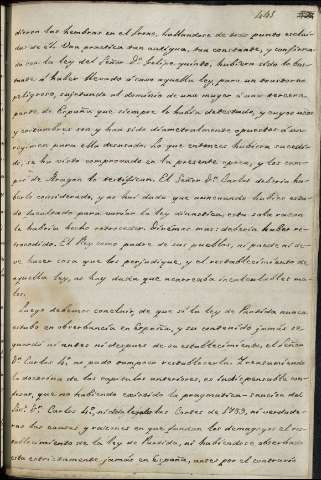 dieron las hembras en el trono, hallandose de este punto exclui-
das de él. Una practica tan antigua, tan constante, y confirma-
da con la ley del Señor Dn. Felipe quinto, hubiera sido lo bas-
tante á haber llevado á cavo aquella ley, para un trastorno
peligroso, sujetando al dominio de una muger á una tercera
parte de España que siempre lo habia detestado, y cuyos usos
y costumbres son y han sido diametralmente opuestos á un
regimen para ella desusado. Lo que entonces hubiera sucedi-
do, se ha visto comprovado en la presente epoca, y los cam-
pos de Aragon lo testifican. El Señor Dn. Carlos deberia ha-
berlo considerado, y no hai duda que aun cuando hubiera esta-
do facultado para variar la ley dinastica, esta sola razon
le habria hecho retroceder. Diremos mas: deberia haber re-
trocedido. El Rey como padre de sus pueblos, ni puede ni de-
ve hacer cosa que los perjudique, y el restablecimiento de
aquella ley, no hay duda que acarreaba incalculables ma-
les.
Luego debemos concluir, de que si la ley de Partida nunca
estubo en observancia en España, y su contenido jamás se
guardó ni antes ni despues de su establecimiento, el Señor
Dn. Carlos 4º, no pudo tampoco restablecerla. Y resumiendo
la doctrina de los capitulos anteriores, es indispensable con-
fesar, que no habiendo existido la pragmatica-sancion del
Sor. Dn. Carlos 4º, ni sido legales las Cortes de 1789, ni verdade-
ras las causas y raizones en que fundan los demagogos el res-
tablecimiento de la ley de Partida, ni habiendose observado
esta estrictamente jamás en España, antes por el contrario